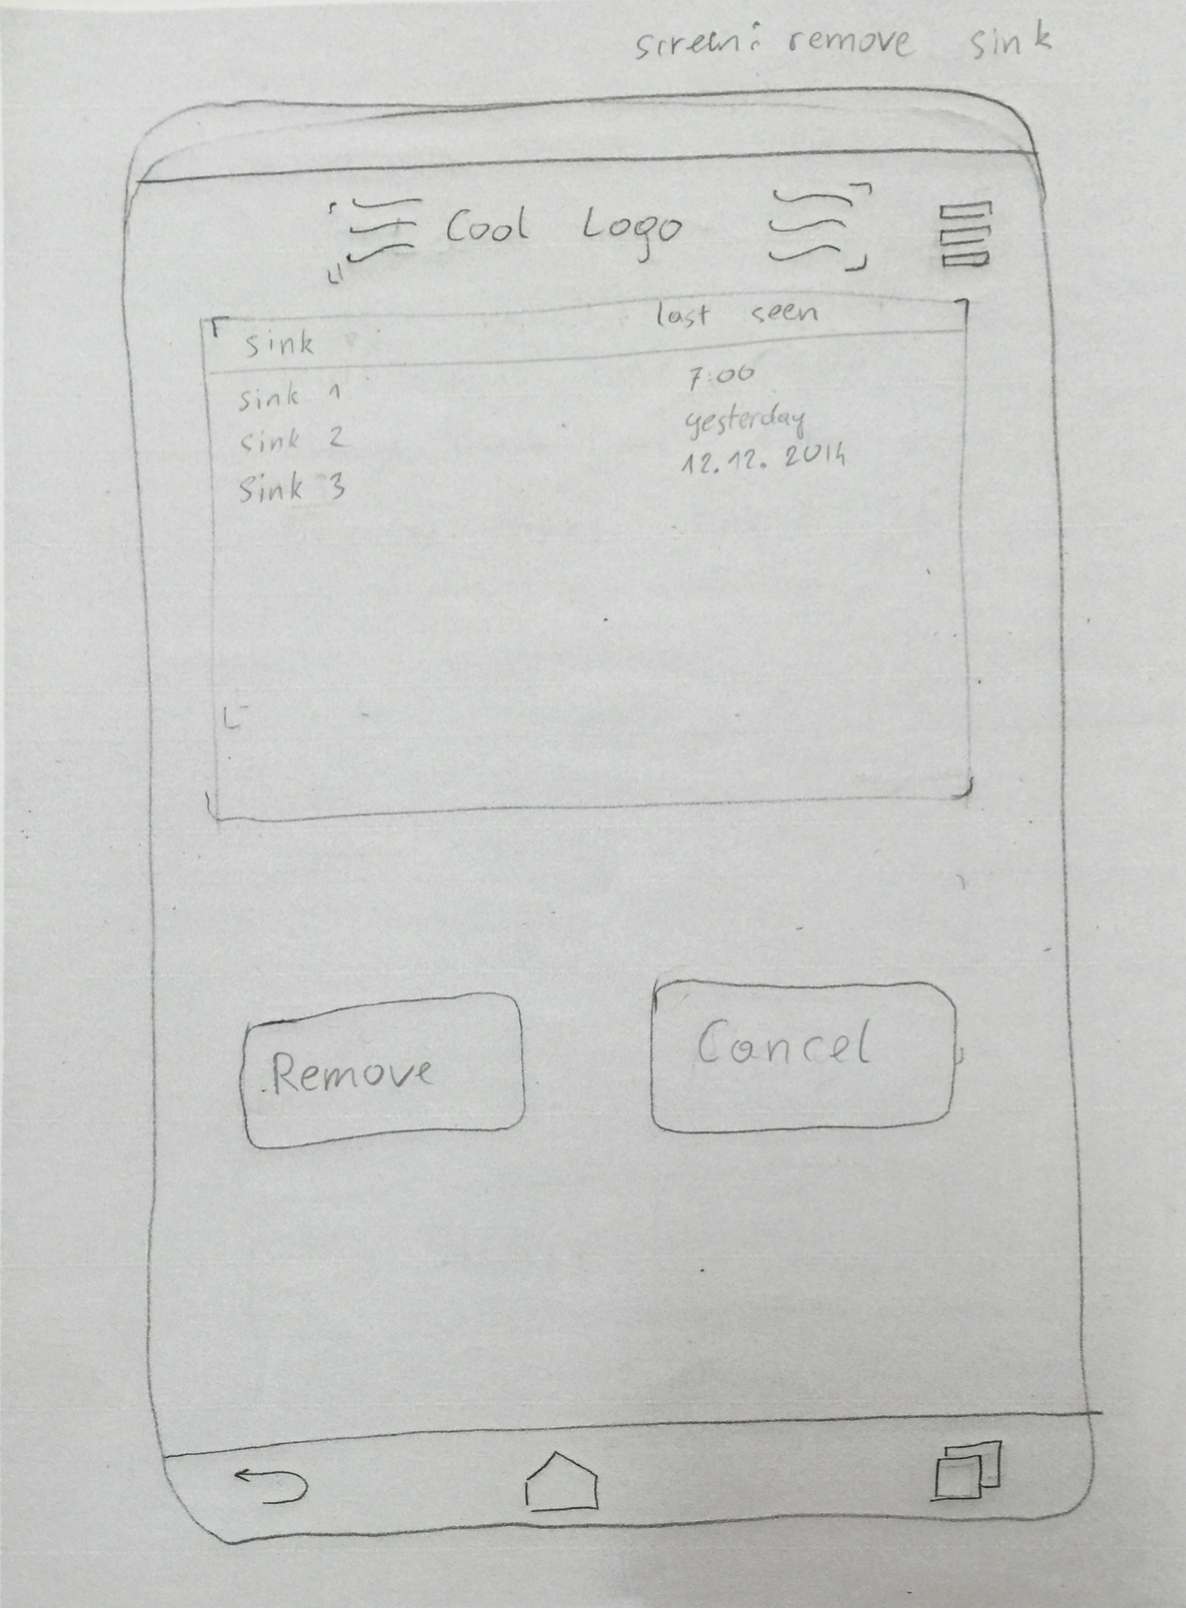 screen: remove sink
Cool Logo
sink last seen
sink 1 7:00
sink 2 yesterday
Sink 3 12.12.2014
Remove Cancel